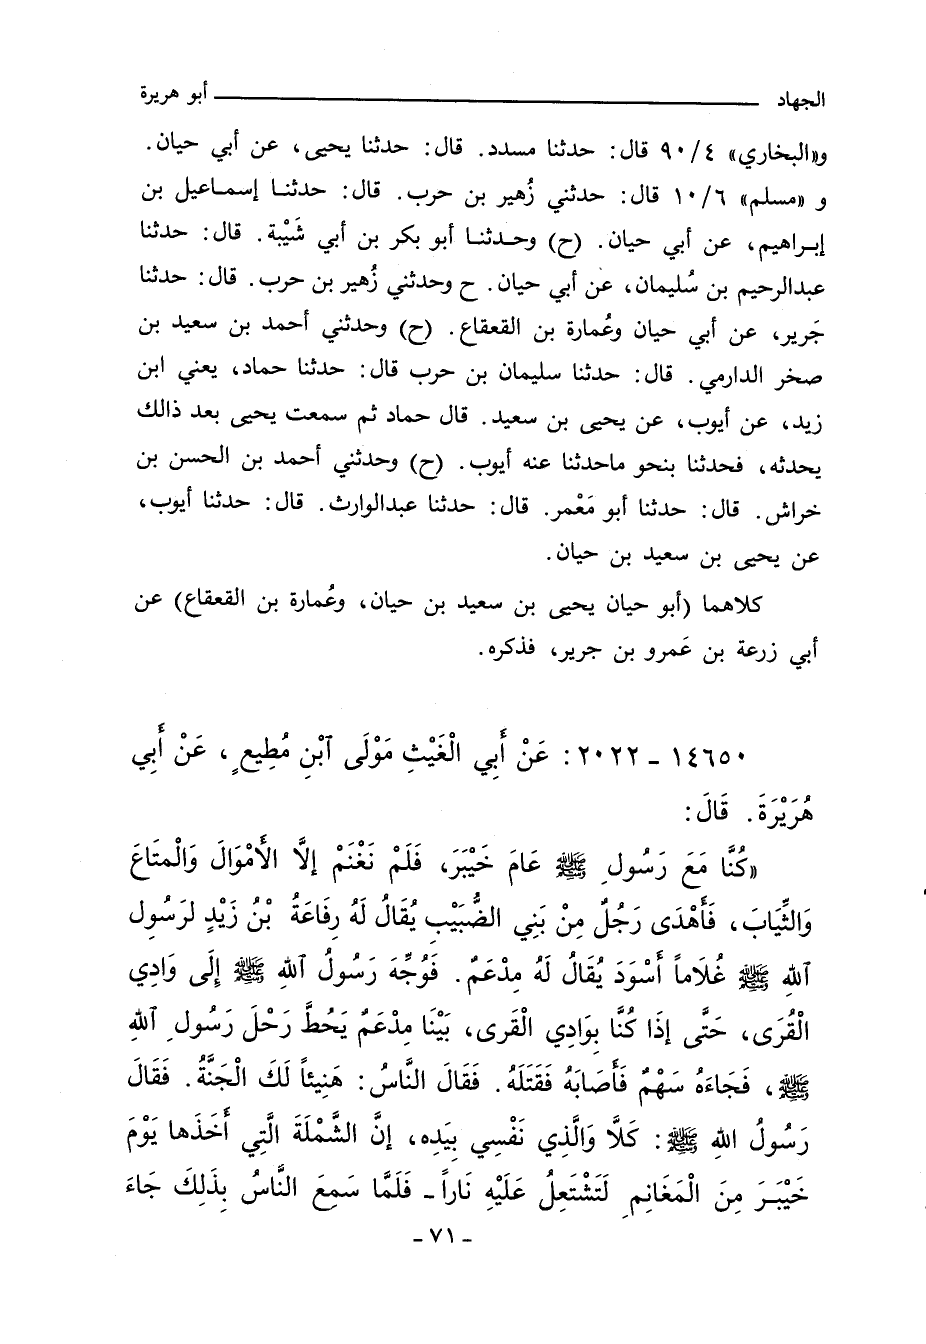 الجهاد ـــــــــ أبو هريرة
و«البخاري» ٩٠/٤ قال: حدثنا مسدد. قال: حدثنا يحيى، عن أبي حيان.
و «مسلم» ١٠/٦ قال: حدثني زُهير بن حرب. قال: حدثنا إسماعيل بن
إبراهيم، عن أبي حيان. (ح) وحدثنا أبو بكر بن أبي شَيْبة. قال: حدثنا
عبدالرحيم بن سُليمان، عن أبي حيان. ح وحدثني زُهير بن حرب. قال: حدثنا
جَرير، عن أبي حيان وعُمارة بن القعقاع. (ح) وحدثني أحمد بن سعيد بن
صخر الدارمي. قال: حدثنا سليمان بن حرب قال: حدثنا حماد، يعني ابن
زيد، عن أيوب، عن يحيى بن سعيد. قال حماد ثم سمعت يحيى بعد ذالك
يحدثه، فحدثنا بنحو ماحدثنا عنه أيوب. (ح) وحدثني أحمد بن الحسن بن
خراش. قال: حدثنا أبو مَعْمر. قال: حدثنا عبدالوارث. قال: حدثنا أيوب،
عن يحيى بن سعيد بن حيان.
كلاهما (أبو حيان يحيى بن سعيد بن حيان، وعُمارة بن القعقاع) عن
أبي زرعة بن عَمرو بن جرير، فذكره.
١٤٦٥٠ ـ ٢٠٢٢: عَنْ أَبِي الْغَيْثِ مَوْلَى آبْنِ مُطِيعٍ، عَنْ أَبِي
هُرَيْرَةَ. قَالَ:
«كُنَّا مَعَ رَسُولِ ﷺ عَامَ خَيْبَرَ، فَلَمْ نَغْنَمْ إلَّا الأَمْوَالَ وَالْمتَاعَ
وَالثِّيَابَ، فَأَهْدَى رَجُلٌ مِنْ بَنِي الضُّبَيْبِ يُقَالُ لَهُ رِفَاعَةُ بْنُ زَيْدٍ لرَسُولِ
آللهِ ﷺ غُلَاماً أَسْوَدَ يُقَالُ لَهُ مِدْعَمٌ. فَوُجِّهَ رَسُولُ آللهِ ﷺ إِلَى وَادِي
الْقُرَى، حَتَّى إذَا كُنَّا بوَادِي الْقَرى، بَيْنَا مِدْعَمٌ يَحُطَّ رَحْلَ رَسُولِ آللهِ
ﷺ، فَجَاءَهُ سَهْمٌ فَأَصَابَهُ فَقَتَلَهُ. فَقَالَ النَّاسُ: هَنِيئاً لَكَ الْجَنَّةُ. فَقَالَ
رَسُولُ اللهِ ﷺ: كَلَّا وَالَّذِي نَفْسِي بِيَدِهِ، إنَّ الشَّمْلَةَ الَّتِي أَخَذَها يَوْمَ
خَيْبَرَ مِنَ الْمَغَانِمِ لَتَشْتَعِلُ عَلَيْهِ نَاراً ـ فَلَمَّا سَمِعَ النَّاسُ بِذَلِكَ جَاءَ
ـ ٧١ ـ